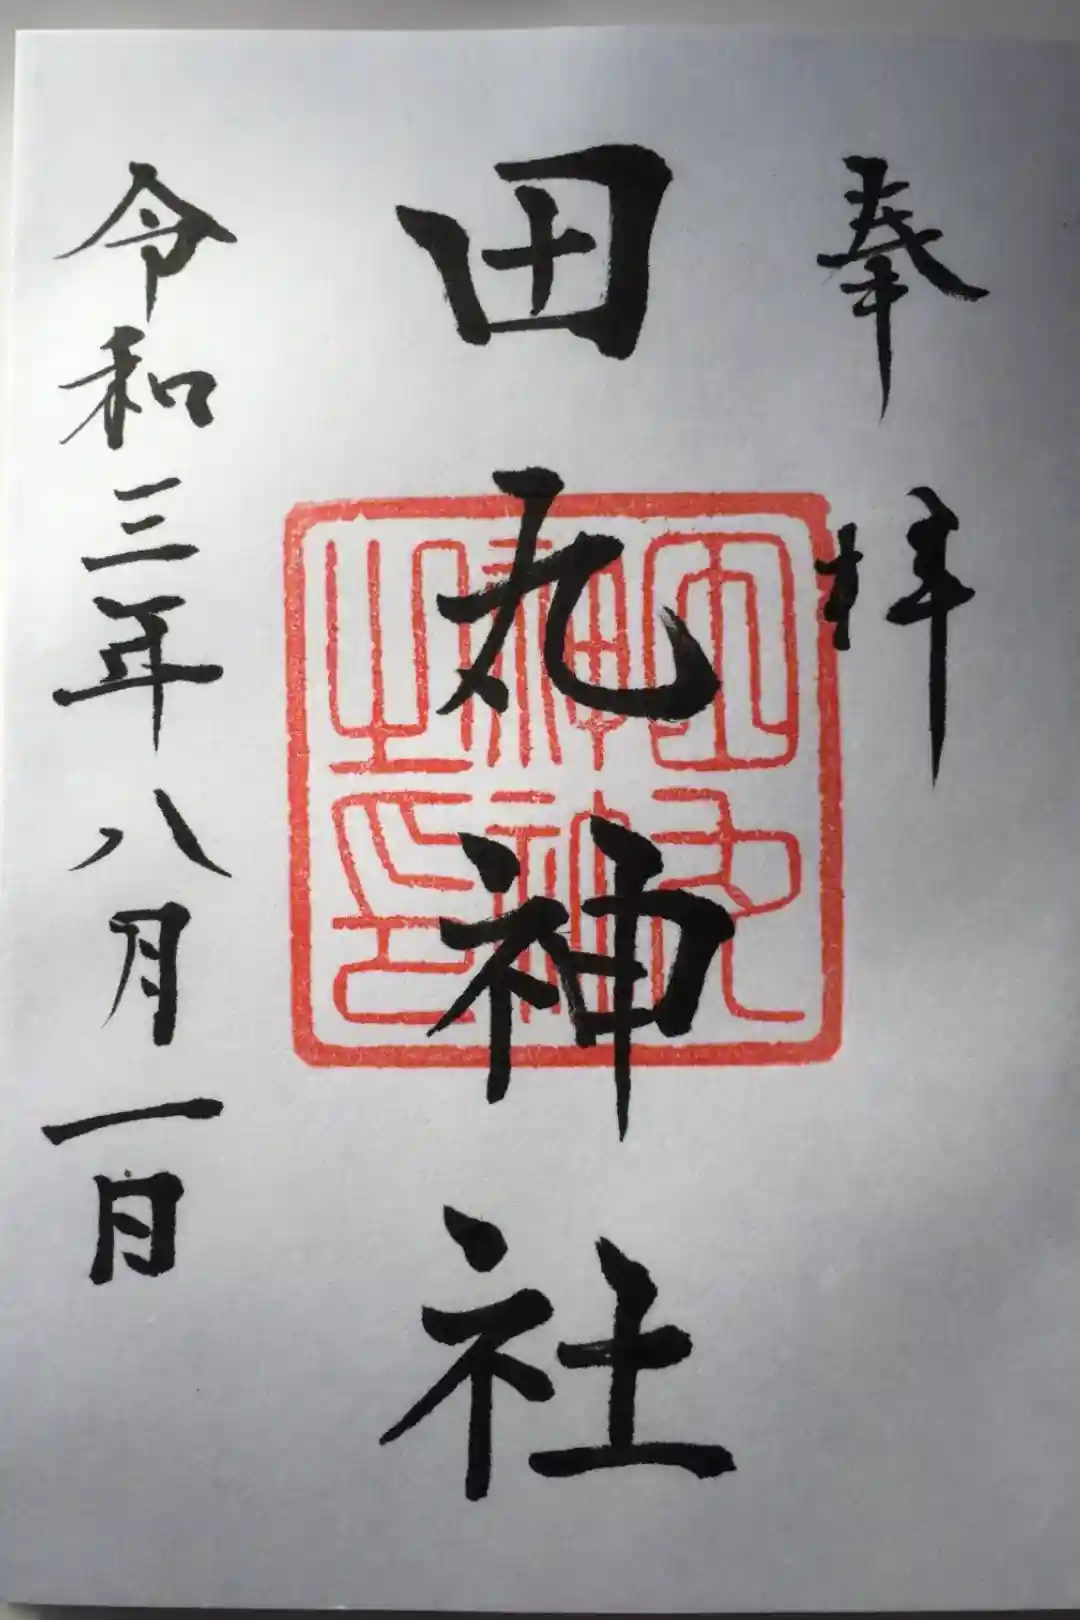 奉拝
田丸神社
令和三年八月一日